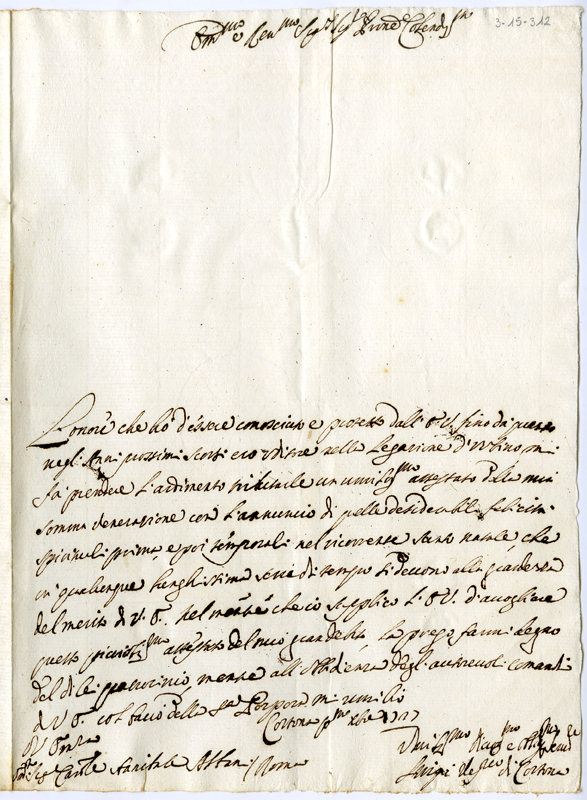 Em.mo e Rev.mo Sig.r Sig.r Prone Colend.mo
3-15-312
L'onore che ho d'essere conosciuto e protetto dall' E.V. fino da quando
negli Anni prossimi scorsi ero Uditore nella Legazione d'Urbino mi
fà prendere l'ardimento tributarle un umiliss.mo attestato della mia
somma venerazione con l'annuncio di quelle desiderabili felicità
spirituali prima, e poi temporali nel ricorrente Santo Natale, che
in qualunque lunghissima serie di tempo si devono alla grandezza
del merito di V. E. Nel mentre che io supplico l'E.V. d'accogliere
questo attestato del mio gran debito, la prego farmi degno
del di lei patrocinio, mentre all' obbedienza degli autorevoli comandi
di V. E. col bacio della S.ra Porpora mi umilio
Cortona p.mo Xbre 1727
Di V. Em.za
Em.mo Sig. Card.le Annibale Albani / Roma
Luigi Ves.co di Cortona